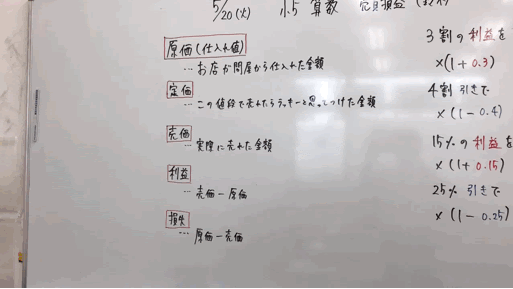 5/20(火) 小5 算数 売買損益
原価(仕入れ値)
…お店が問屋から仕入れた金額
定価
…この値段で売れたらラッキーと思ってつけた金額
売価
…実際に売れた金額
利益
…売価-原価
損失
…原価-売価
3割の利益を
×(1+0.3)
4割引きで
×(1-0.4)
15%の利益を
×(1+0.15)
25%引きで
×(1-0.25)